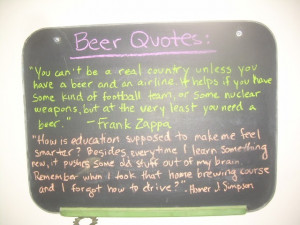 Beer Quotes:
"You can't be a real country unless you
have a beer and an airline. It helps if you have
some kind of football team, or some nuclear
weapons, but at the very least you need a
beer." - Frank Zappa
"How is education supposed to make me feel
smarter? Besides, everytime I learn something
new, it pushes some old stuff out of my brain.
Remember when I took that home brewing course
and I forgot how to drive?" - Homer J Simpson